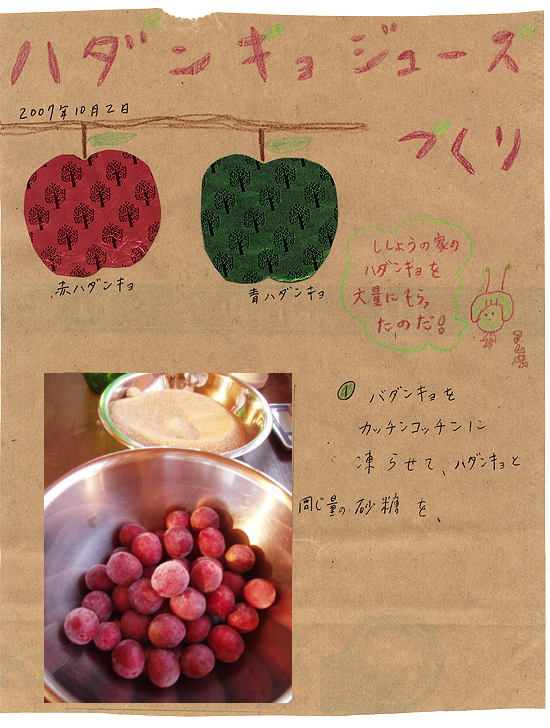 ハダンギョジュース
づくり
2007年10月2日
赤ハダンキョ
青ハダンキョ
ししょうの家の
ハダンキョを
大量にもらっ
たのだ!
① バダンキョを
カッチンコッチンに
凍らせて、ハダンキョと
同じ量の砂糖を、